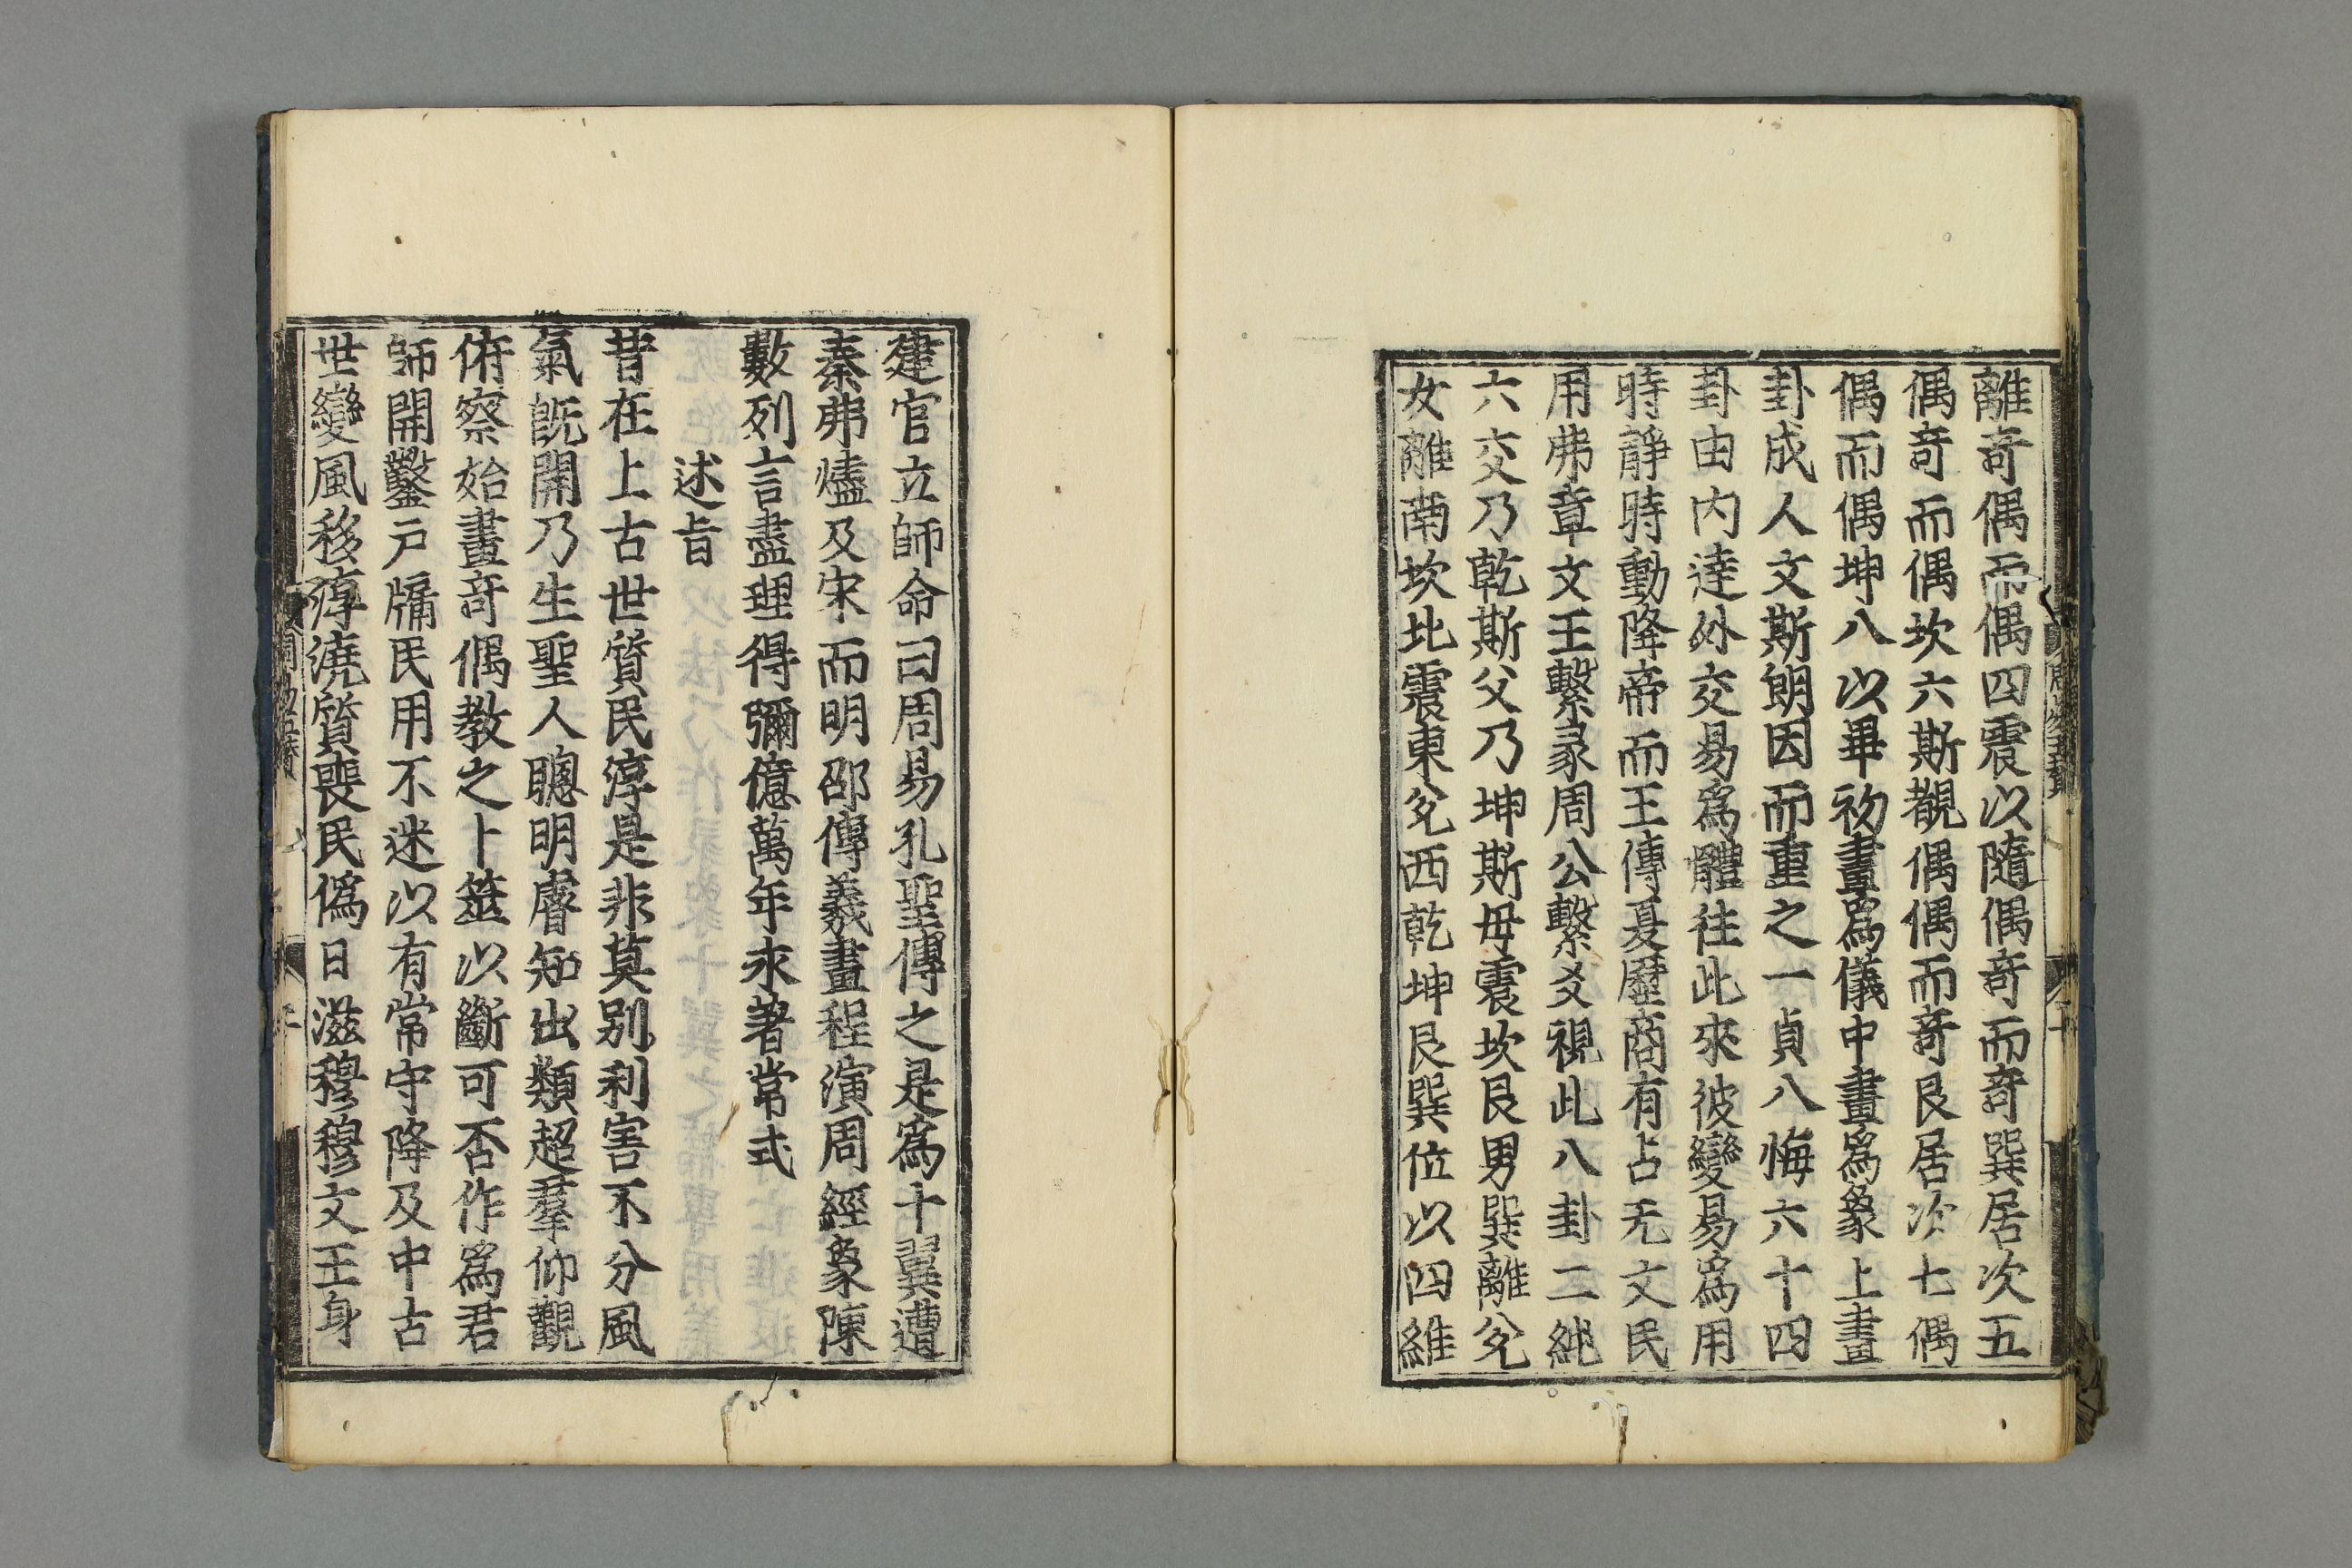 離奇偶而偶四震以隨偶奇而奇巽居次五
偶奇而偶坎六斯覩偶偶而奇艮居次七偶
偶而偶坤八以畢初畫爲儀中畫爲象上畫
卦成人文斯朗因而重之一貞八悔六十四
卦由内達外交易爲體往此來彼變易爲用
時靜時動降帝而王傳夏歷商有占无文民
用弗章文王繫彖周公繫爻視此八卦二純
六交乃乾斯父乃坤斯母震坎艮男巽離兊
女離南坎北震東兊西乾坤艮巽位以四維
建官立師命曰周易孔聖傳之是爲十翼遭
秦弗燼及宋而明邵傳羲畫程演周經象陳
數列言盡理得彌億萬年永著常式
述旨
昔在上古世質民淳是非莫別利害不分風
氣旣開乃生聖人聰明睿知出類超羣仰觀
俯察始畫奇偶教之卜筮以斷可否作爲君
師開鑿戶牖民用不迷以有常守降及中古
世變風移淳澆質喪民僞日滋穆穆文王身